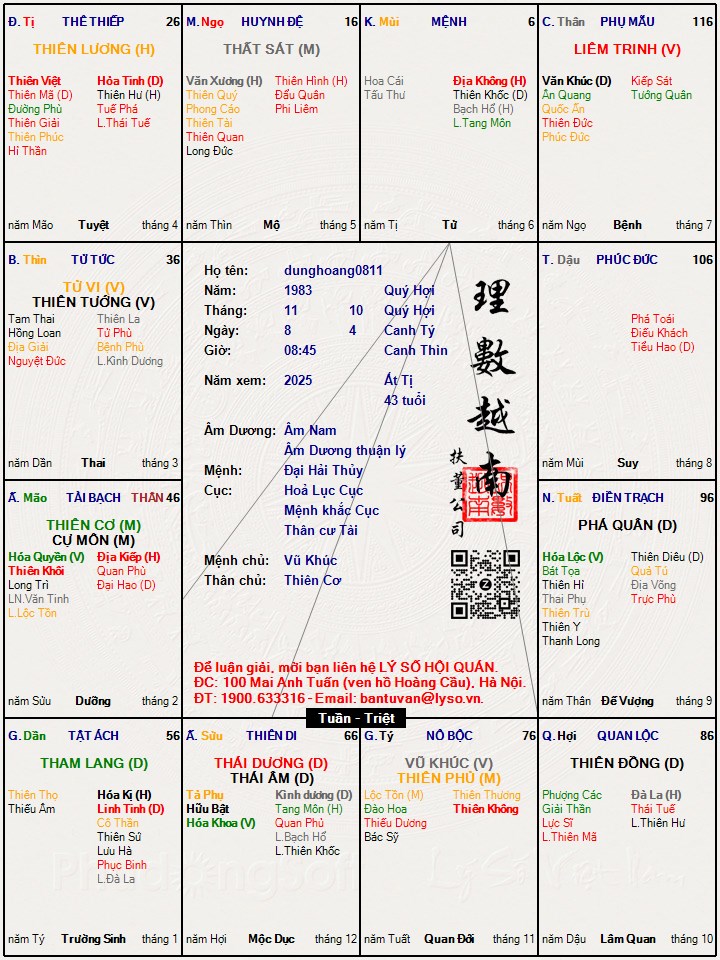 Đ. Tị THÊ THIẾP 26
THIÊN LƯƠNG (H)
Thiên Việt Hỏa Tinh (D)
Thiên Mã (D) Thiên Hư (H)
Đường Phù Tuế Phá
Thiên Giải L.Thái Tuế
Thiên Phúc
Hỉ Thần
năm Mão Tuyệt tháng 4
M. Ngọ HUYNH ĐỆ 16
THẤT SÁT (M)
Văn Xương (H) Thiên Hình (H)
Thiên Quý Đẩu Quân
Phong Cáo Phi Liêm
Thiên Tài
Thiên Quan
Long Đức
năm Thìn Mộ tháng 5
K. Mùi MỆNH 6
Hoa Cái Địa Không (H)
Tấu Thư Thiên Khốc (D)
Bạch Hổ (H)
L.Tang Môn
năm Tị Tử tháng 6
C. Thân PHỤ MẪU 116
LIÊM TRINH (V)
Văn Khúc (D) Kiếp Sát
Ân Quang Tướng Quân
Quốc Ấn
Thiên Đức
Phúc Đức
năm Ngọ Bệnh tháng 7
B. Thìn TỬ TỨC 36
TỬ VI (V)
THIÊN TƯỚNG (V)
Tam Thai Thiên La
Hồng Loan Tử Phù
Địa Giải Bệnh Phù
Nguyệt Đức L.Kình Dương
năm Dần Thai tháng 3
Họ tên: dunghoang0811
Năm: 1983 Quý Hợi
Tháng: 11 10 Quý Hợi
Ngày: 8 4 Canh Tý
Giờ: 08:45 Canh Thìn
Năm xem: 2025 Ất Tị
43 tuổi
Âm Dương: Âm Nam
Âm Dương thuận lý
Mệnh: Đại Hải Thủy
Cục: Hoả Lục Cục
Mệnh khắc Cục
Thân cư Tài
Mệnh chủ: Vũ Khúc
Thân chủ: Thiên Cơ
理數越南
扶董公司
Để luận giải, mời bạn liên hệ LÝ SỐ HỘI QUÁN.
ĐC: 100 Mai Anh Tuấn (ven hồ Hoàng Cầu), Hà Nội.
ĐT: 1900.633316 - Email: bantuvan@lyso.vn.
Tuần - Triệt
T. Dậu PHÚC ĐỨC 106
Phá Toái
Điếu Khách
Tiểu Hao (D)
năm Mùi Suy tháng 8
Ấ. Mão TÀI BẠCH THÂN 46
THIÊN CƠ (M)
CỰ MÔN (M)
Hóa Quyền (V) Địa Kiếp (H)
Thiên Khôi Quan Phù
Long Trì Đại Hao (D)
LN.Văn Tinh
L.Lộc Tồn
năm Sửu Dưỡng tháng 2
N. Tuất ĐIỀN TRẠCH 96
PHÁ QUÂN (D)
Hóa Lộc (V) Thiên Diêu (D)
Bát Tọa Quả Tú
Thiên Hỉ Địa Võng
Thai Phụ Trực Phù
Thiên Trù
Thiên Y
Thanh Long
năm Thân Đế Vượng tháng 9
G. Dần TẬT ÁCH 56
THAM LANG (D)
Thiên Thọ Hóa Kị (H)
Thiếu Âm Linh Tinh (D)
Cô Thần
Thiên Sứ
Lưu Hà
Phục Binh
L.Đà La
năm Tý Trường Sinh tháng 1
Ấ. Sửu THIÊN DI 66
THÁI DƯƠNG (D)
THÁI ÂM (D)
Tả Phụ Kình dương (D)
Hữu Bật Tang Môn (H)
Hóa Khoa (V) Quan Phủ
L.Bạch Hổ
L.Thiên Khốc
năm Hợi Mộc Dục tháng 12
G. Tý NÔ BỘC 76
VŨ KHÚC (V)
THIÊN PHỦ (M)
Lộc Tồn (M) Thiên Thương
Đào Hoa Thiên Không
Thiếu Dương
Bác Sỹ
năm Tuất Quan Đới tháng 11
Q. Hợi QUAN LỘC 86
THIÊN ĐỒNG (D)
Phượng Các Đà La (H)
Giải Thần Thái Tuế
Lực Sĩ L.Thiên Hư
L.Thiên Mã
năm Dậu Lâm Quan tháng 10